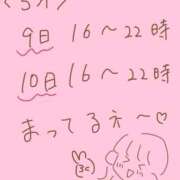 9日 16〜22時
10日 16〜22時
まってるえ〜♡